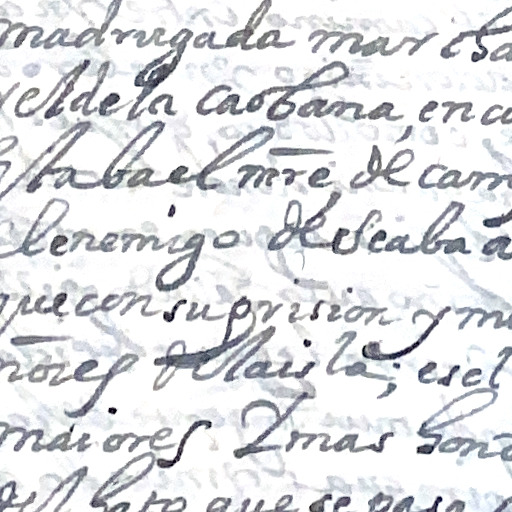 madrugada marcha
el de la Caobana, en ca
staba el mrē, de cam
l enemigo deseaba a
que con su prision y m
nōres de la isla; es el
maiores. Y mas hon
que se pasa